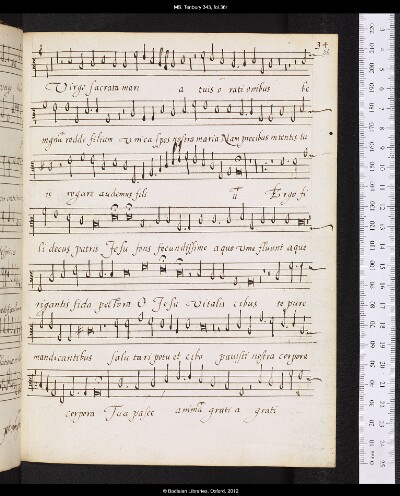 MS. Tenbury 343, fol.36r
34
36
Virgo sacrata mari a tuis o rationibus be
mgnū redde filium Unica spes nostra maria Nam precibus intentis tu
is rogare audemus fili ū Ergo fi
li decus patris Jesu fons fecundissime a quo vivae fluunt aque
rigantis fida pectora O Jesu vitalis cibus te pure
manducantibus salu ta ri potu et cibo pavisti nostra corpora
corpora Tua pasce animā grati a grati
© Bodleian Libraries, Oxford, 2012